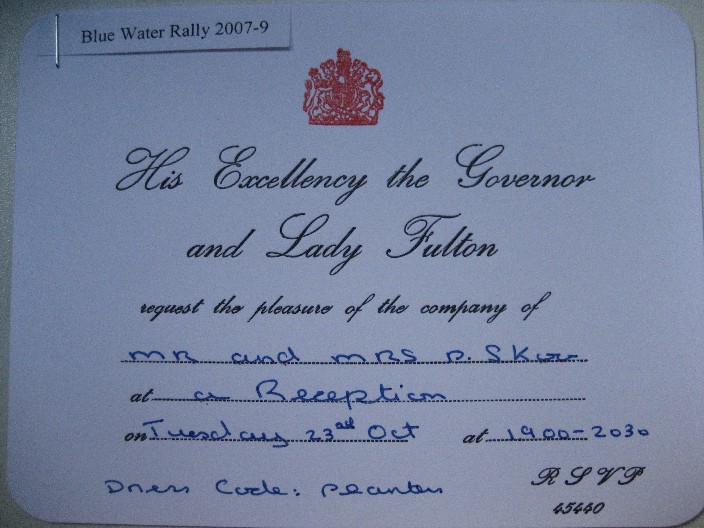 Blue Water Rally 2007-9
His Excellency the Governor
and Lady Fulton
request the pleasure of the company of
MR and MRS P.
at a Reception
on Tuesday 23rd Oct at 1900-2030
RSVP
Dress Code: Planters
45440